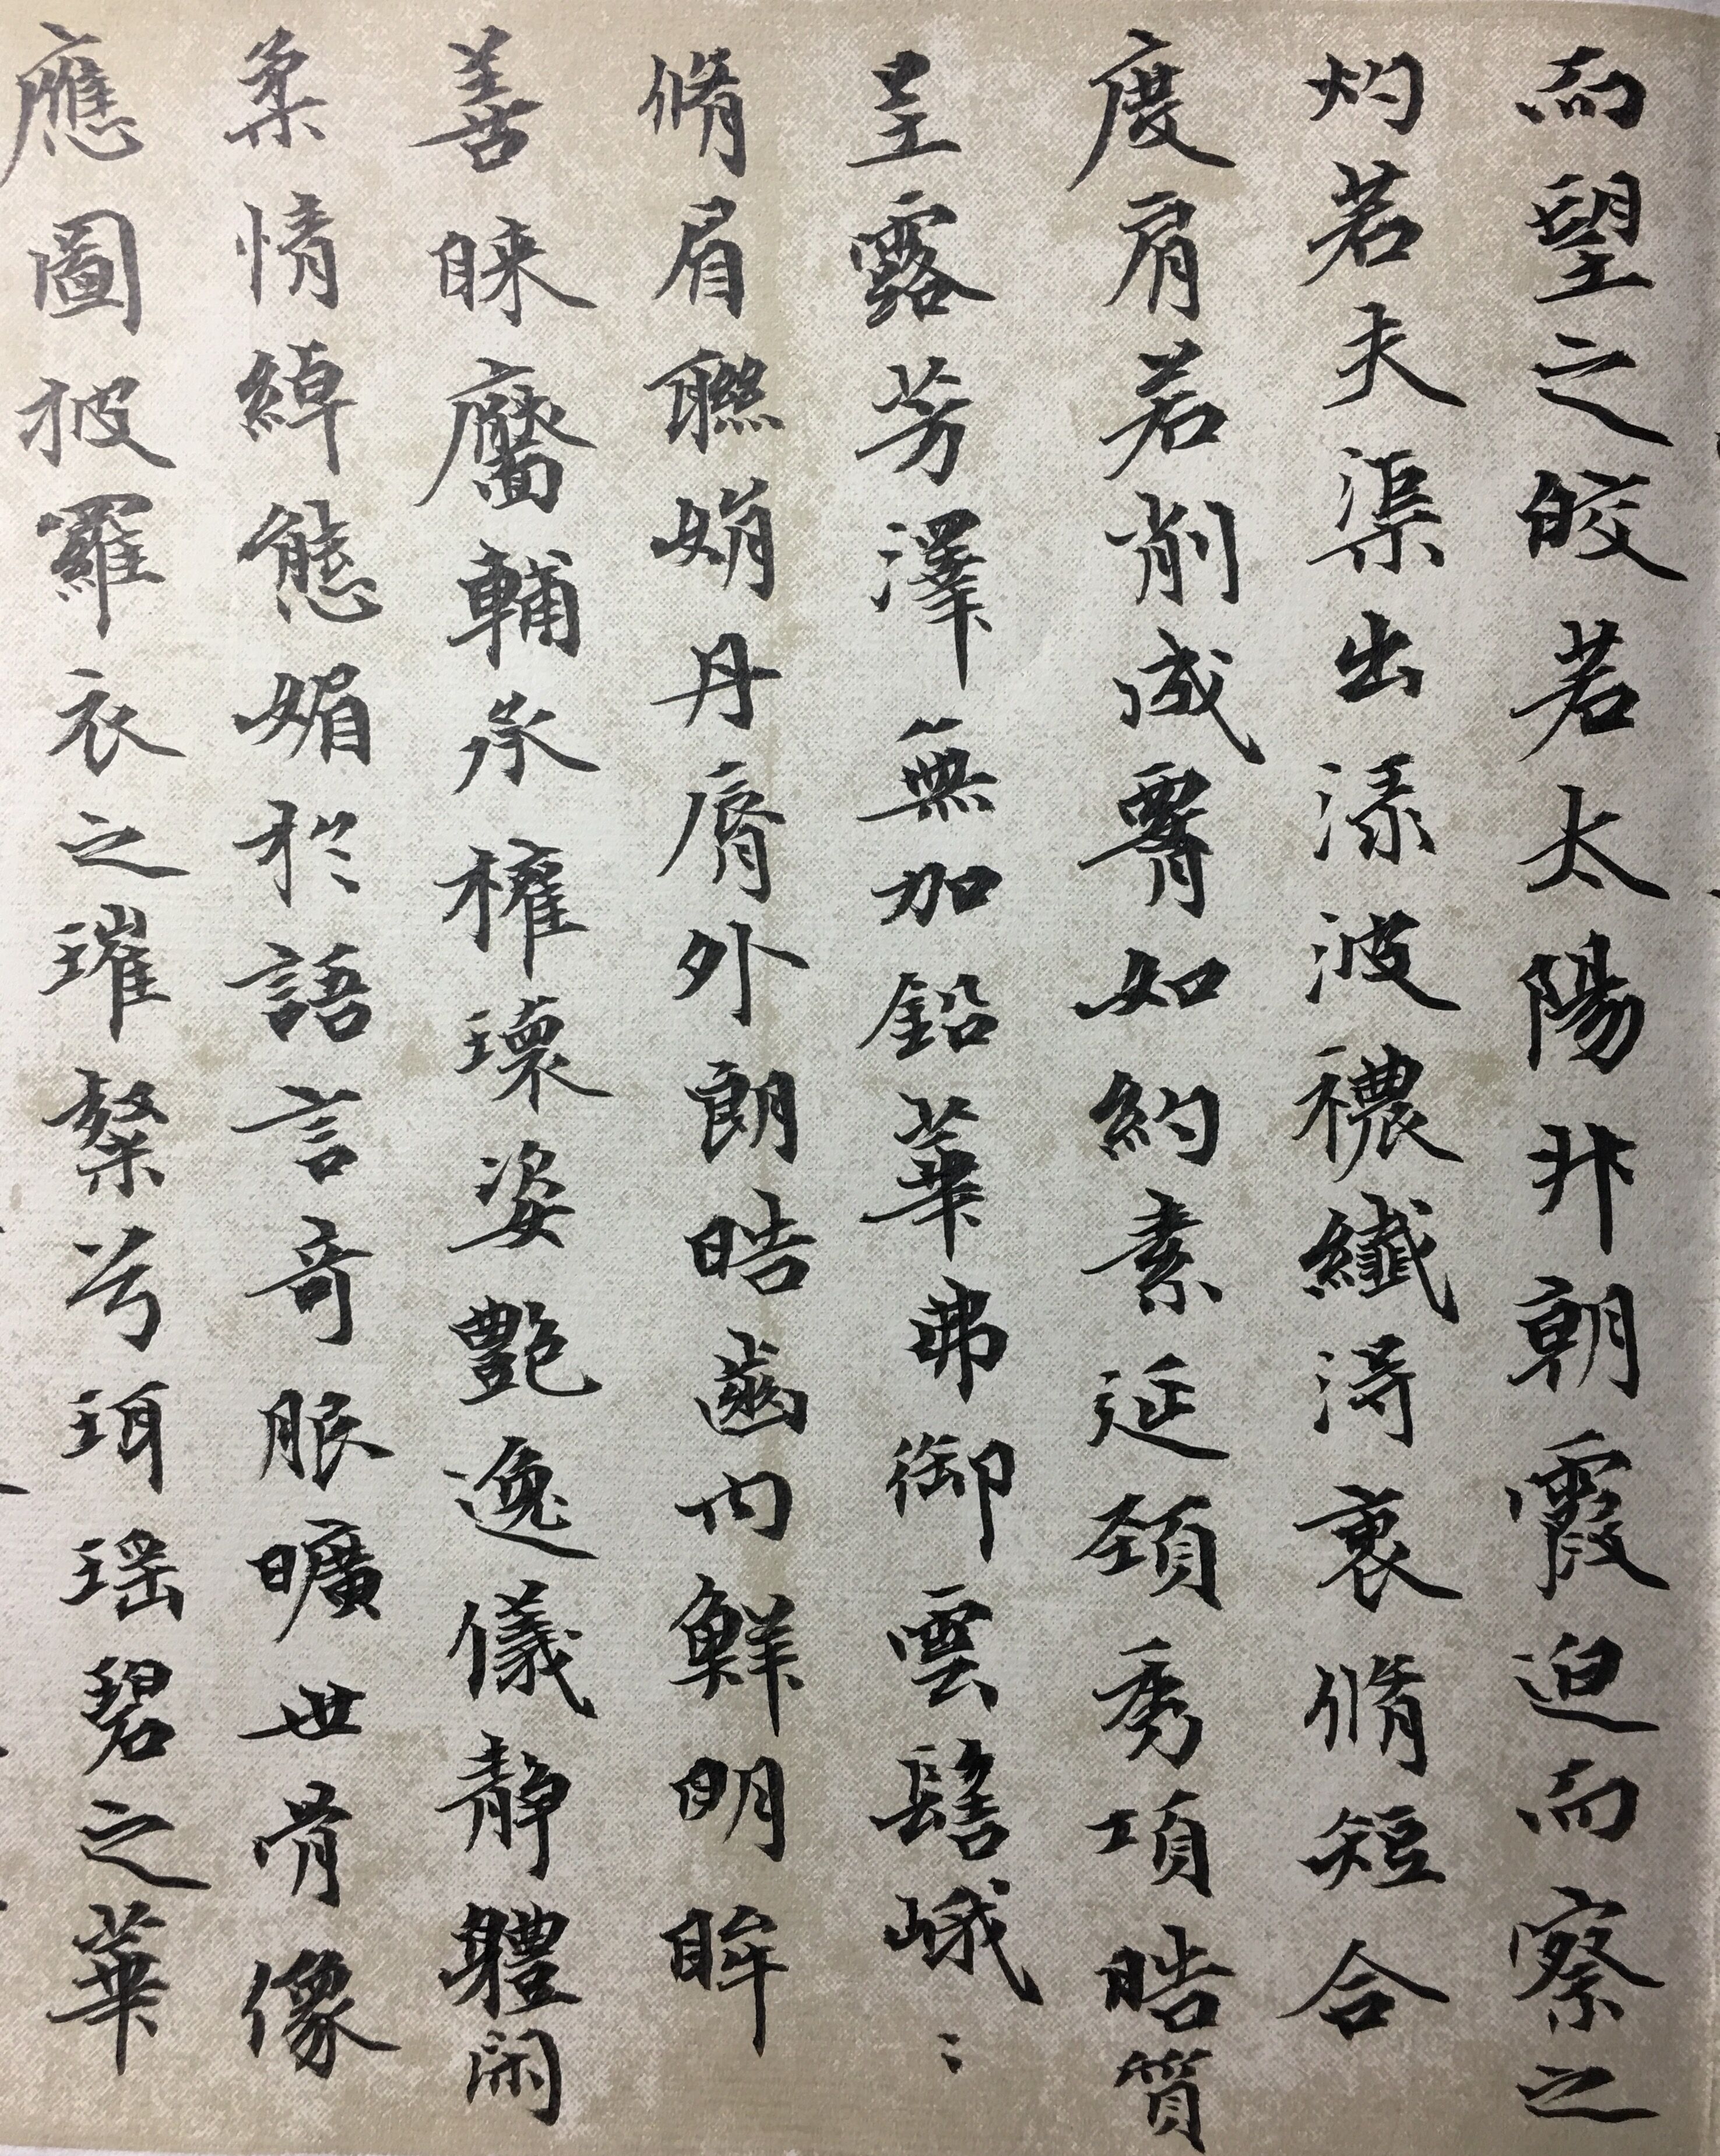 而望之皎若太陽升朝霞迫而察之
灼若夫渠出淥波穠纖得衷脩短合
度肩若削成署如約素延頸秀項皓質
呈露芳澤無加鉛華弗御雲髻峨〻
脩眉聯娟丹脣外朗皓齒内鮮明眸
善睞靨輔承權瓌姿艷逸儀靜體閑
柔情綽態媚於語言奇服曠世骨像
應圖披羅衣之璀粲兮珥瑶碧之華